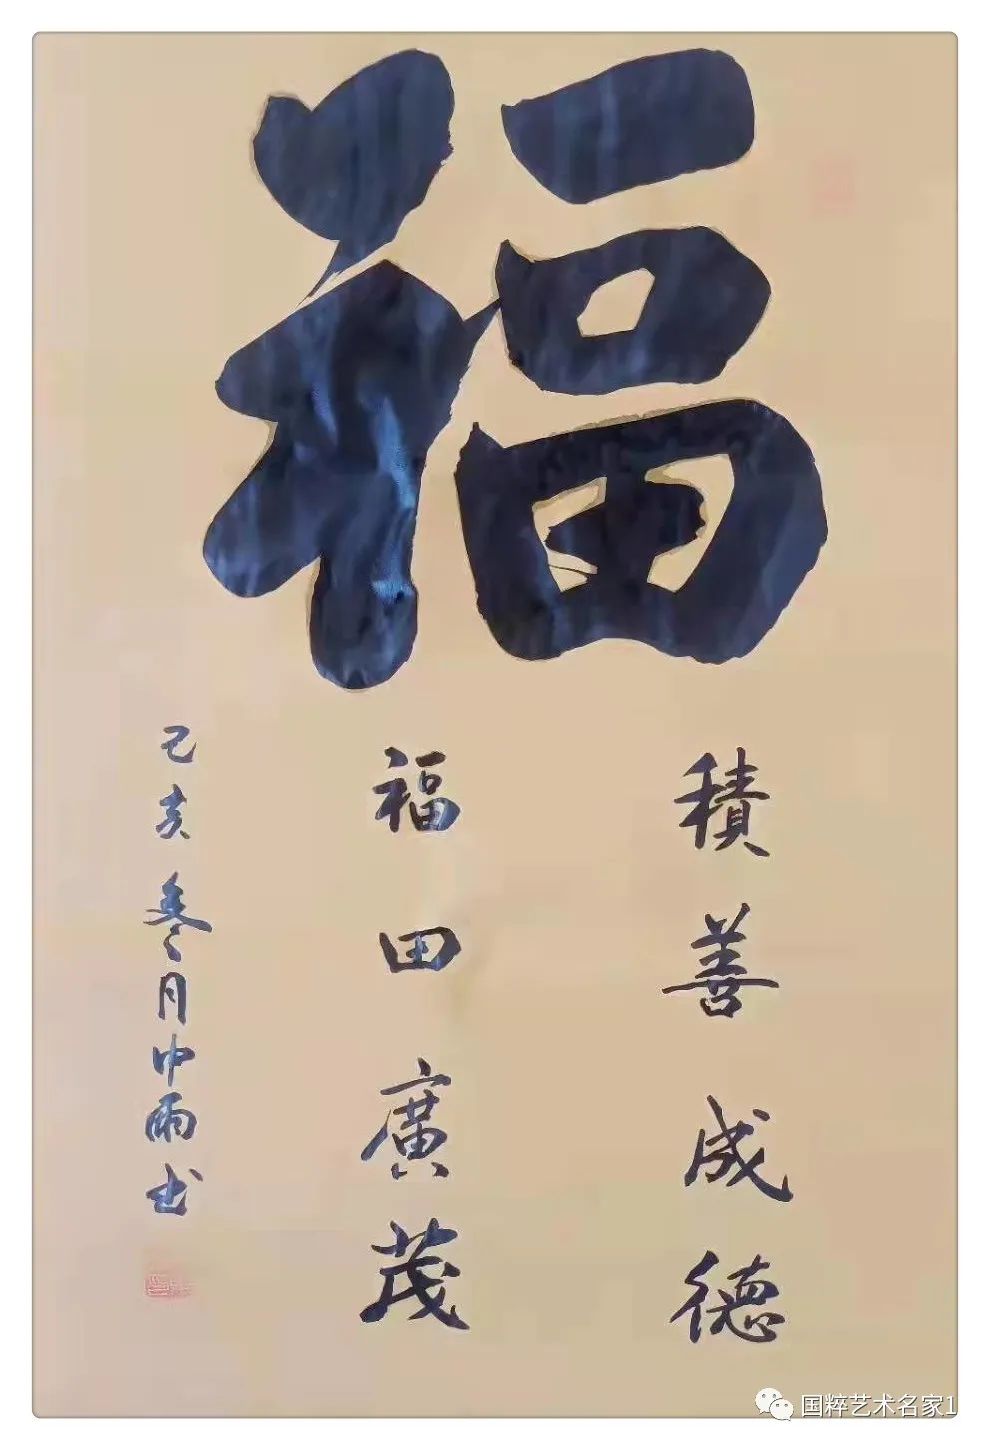 福
積善成德
福田廣茂
己亥冬月中雨书
国粹艺术名家1